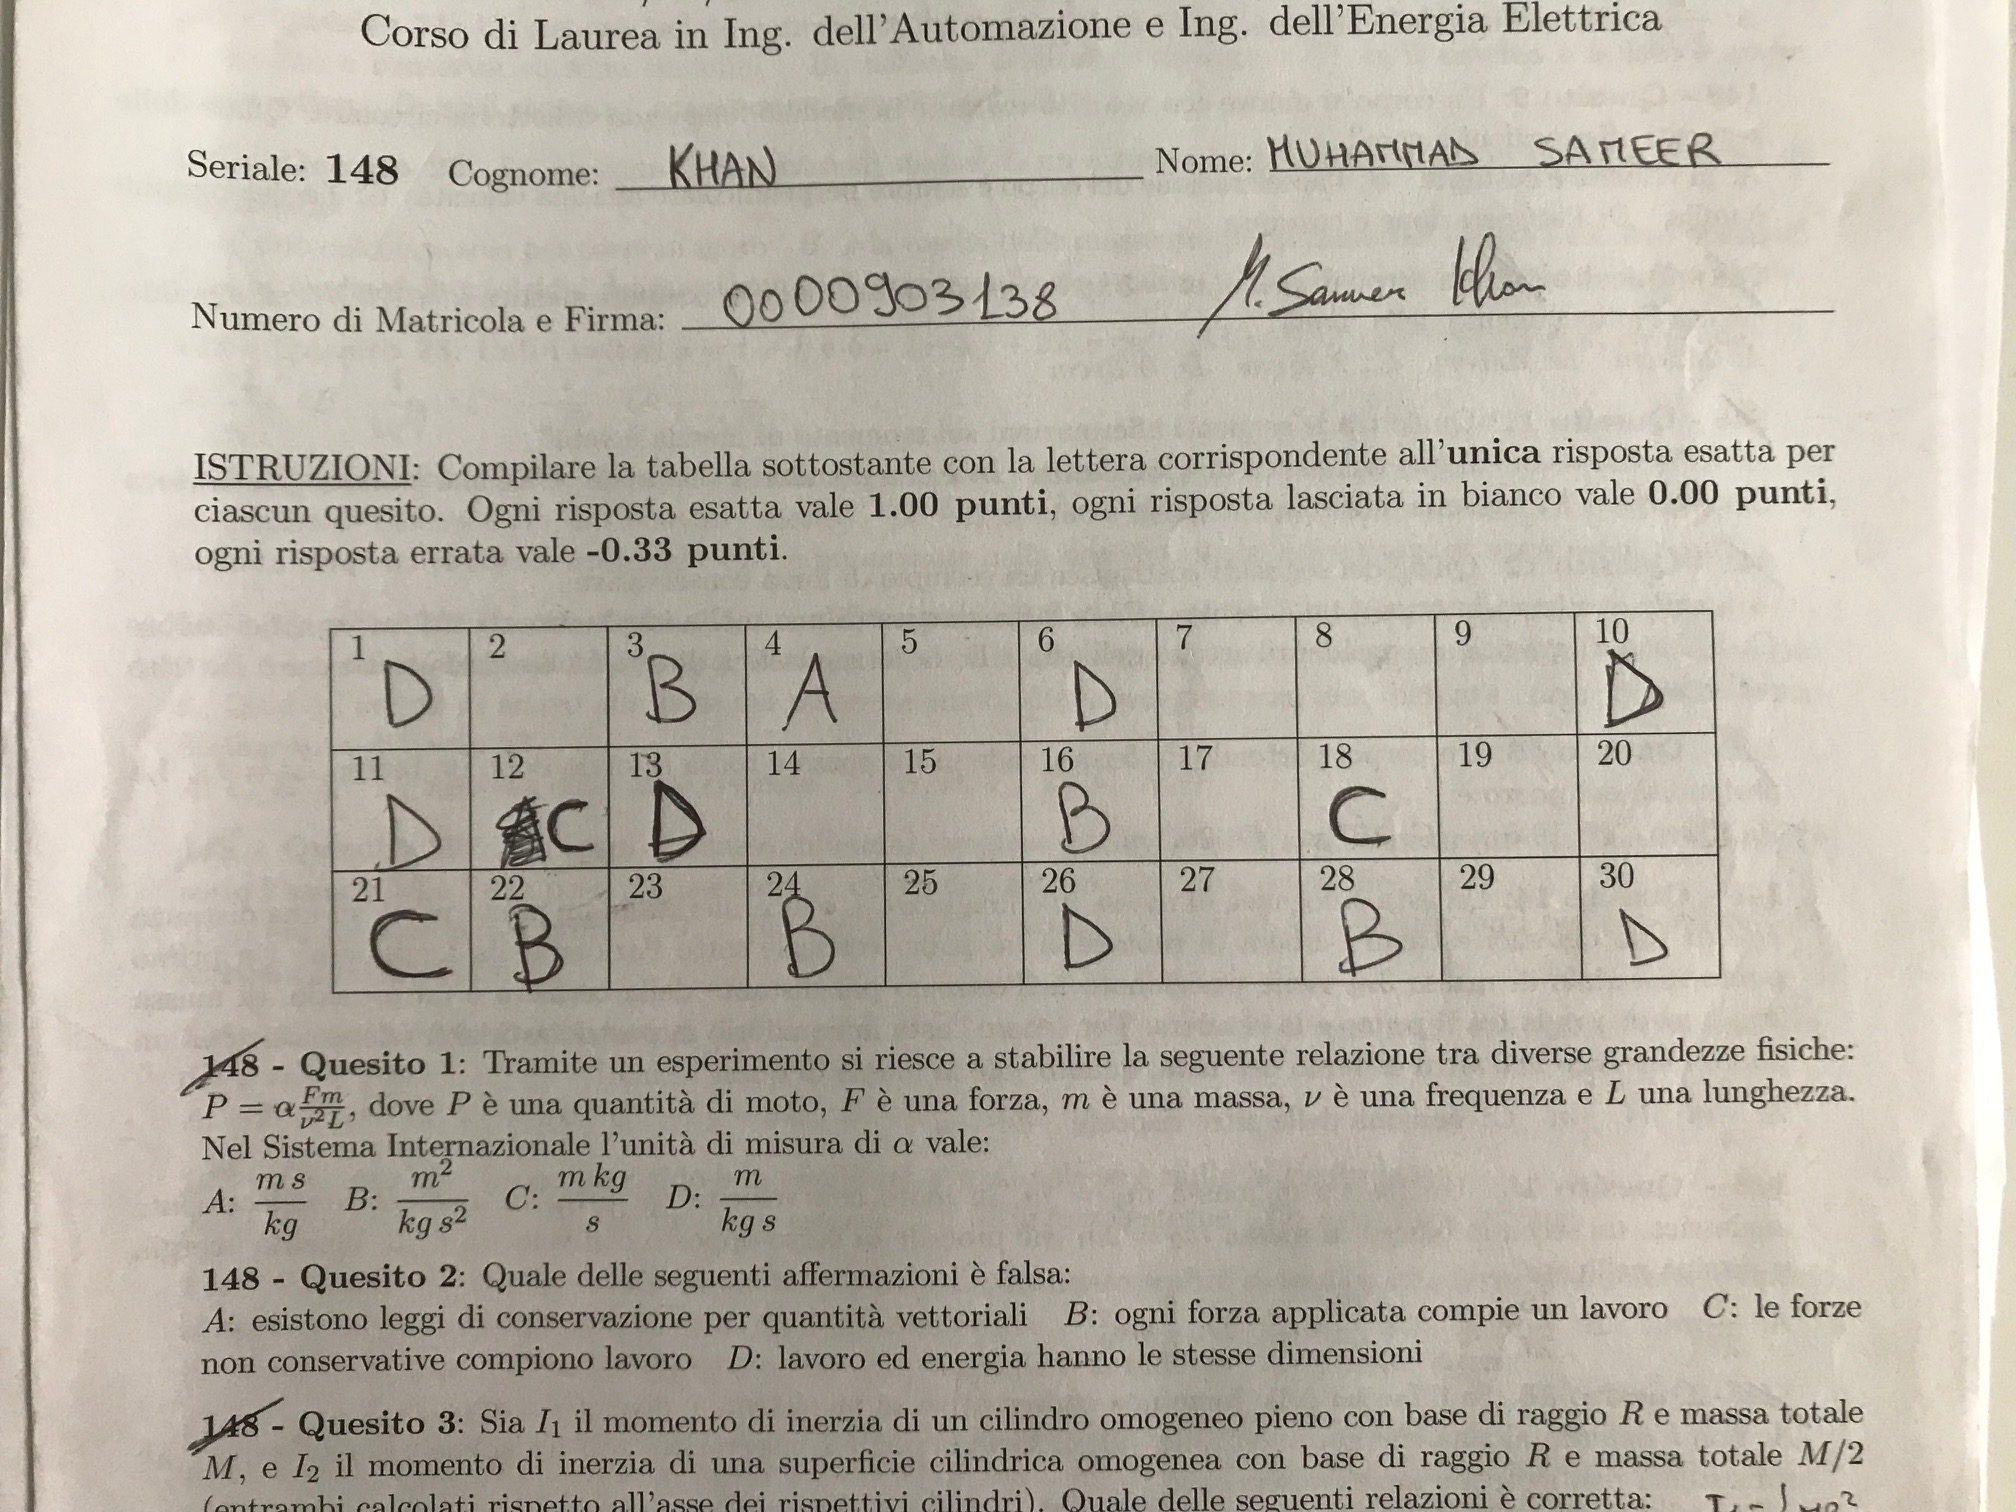 Corso di Laurea in Ing. dell'Automazione e Ing. dell'Energia Elettrica
Seriale: 148 Cognome: KHAN Nome: MUHAMMAD SAMEER
Numero di Matricola e Firma: 0000903138 M. Sameer Khan
ISTRUZIONI: Compilare la tabella sottostante con la lettera corrispondente all'unica risposta esatta per
ciascun quesito. Ogni risposta esatta vale 1.00 punti, ogni risposta lasciata in bianco vale 0.00 punti,
ogni risposta errata vale -0.33 punti.
1 2 3 4 5 6 7 8 9 10
D B A D D
11 12 13 14 15 16 17 18 19 20
D C D B C
21 22 23 24 25 26 27 28 29 30
C B B D B D
148 - Quesito 1: Tramite un esperimento si riesce a stabilire la seguente relazione tra diverse grandezze fisiche:
P = α Fm/ν²L, dove P è una quantità di moto, F è una forza, m è una massa, ν è una frequenza e L una lunghezza.
Nel Sistema Internazionale l'unità di misura di α vale:
A: m s/kg B: m²/kg s² C: m kg/s D: m/kg s
148 - Quesito 2: Quale delle seguenti affermazioni è falsa:
A: esistono leggi di conservazione per quantità vettoriali B: ogni forza applicata compie un lavoro C: le forze
non conservative compiono lavoro D: lavoro ed energia hanno le stesse dimensioni
148 - Quesito 3: Sia I₁ il momento di inerzia di un cilindro omogeneo pieno con base di raggio R e massa totale
M, e I₂ il momento di inerzia di una superficie cilindrica omogenea con base di raggio R e massa totale M/2
(entrambi calcolati rispetto all'asse dei rispettivi cilindri). Quale delle seguenti relazioni è corretta: